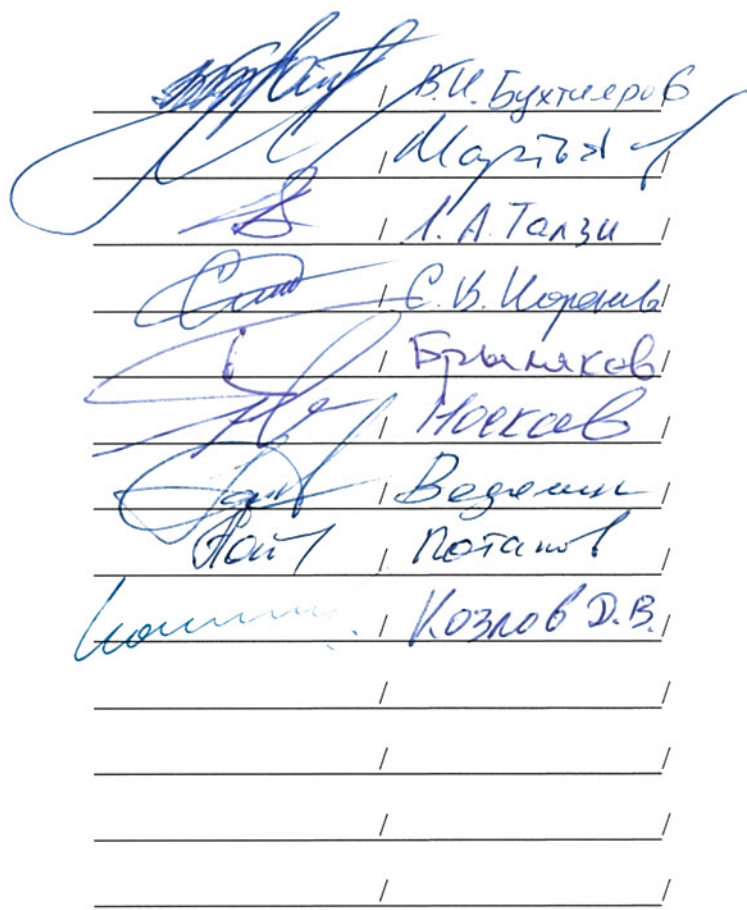 / В.И. Бухтияров /
/ Мартьянов /
/ Л.А. Талзи /
/ С.В. Коренев /
/ Брыляков /
/ Носков /
/ Ведягин /
/ Потапов /
/ Козлов Д.В. /
/ /
/ /
/ /
/ /